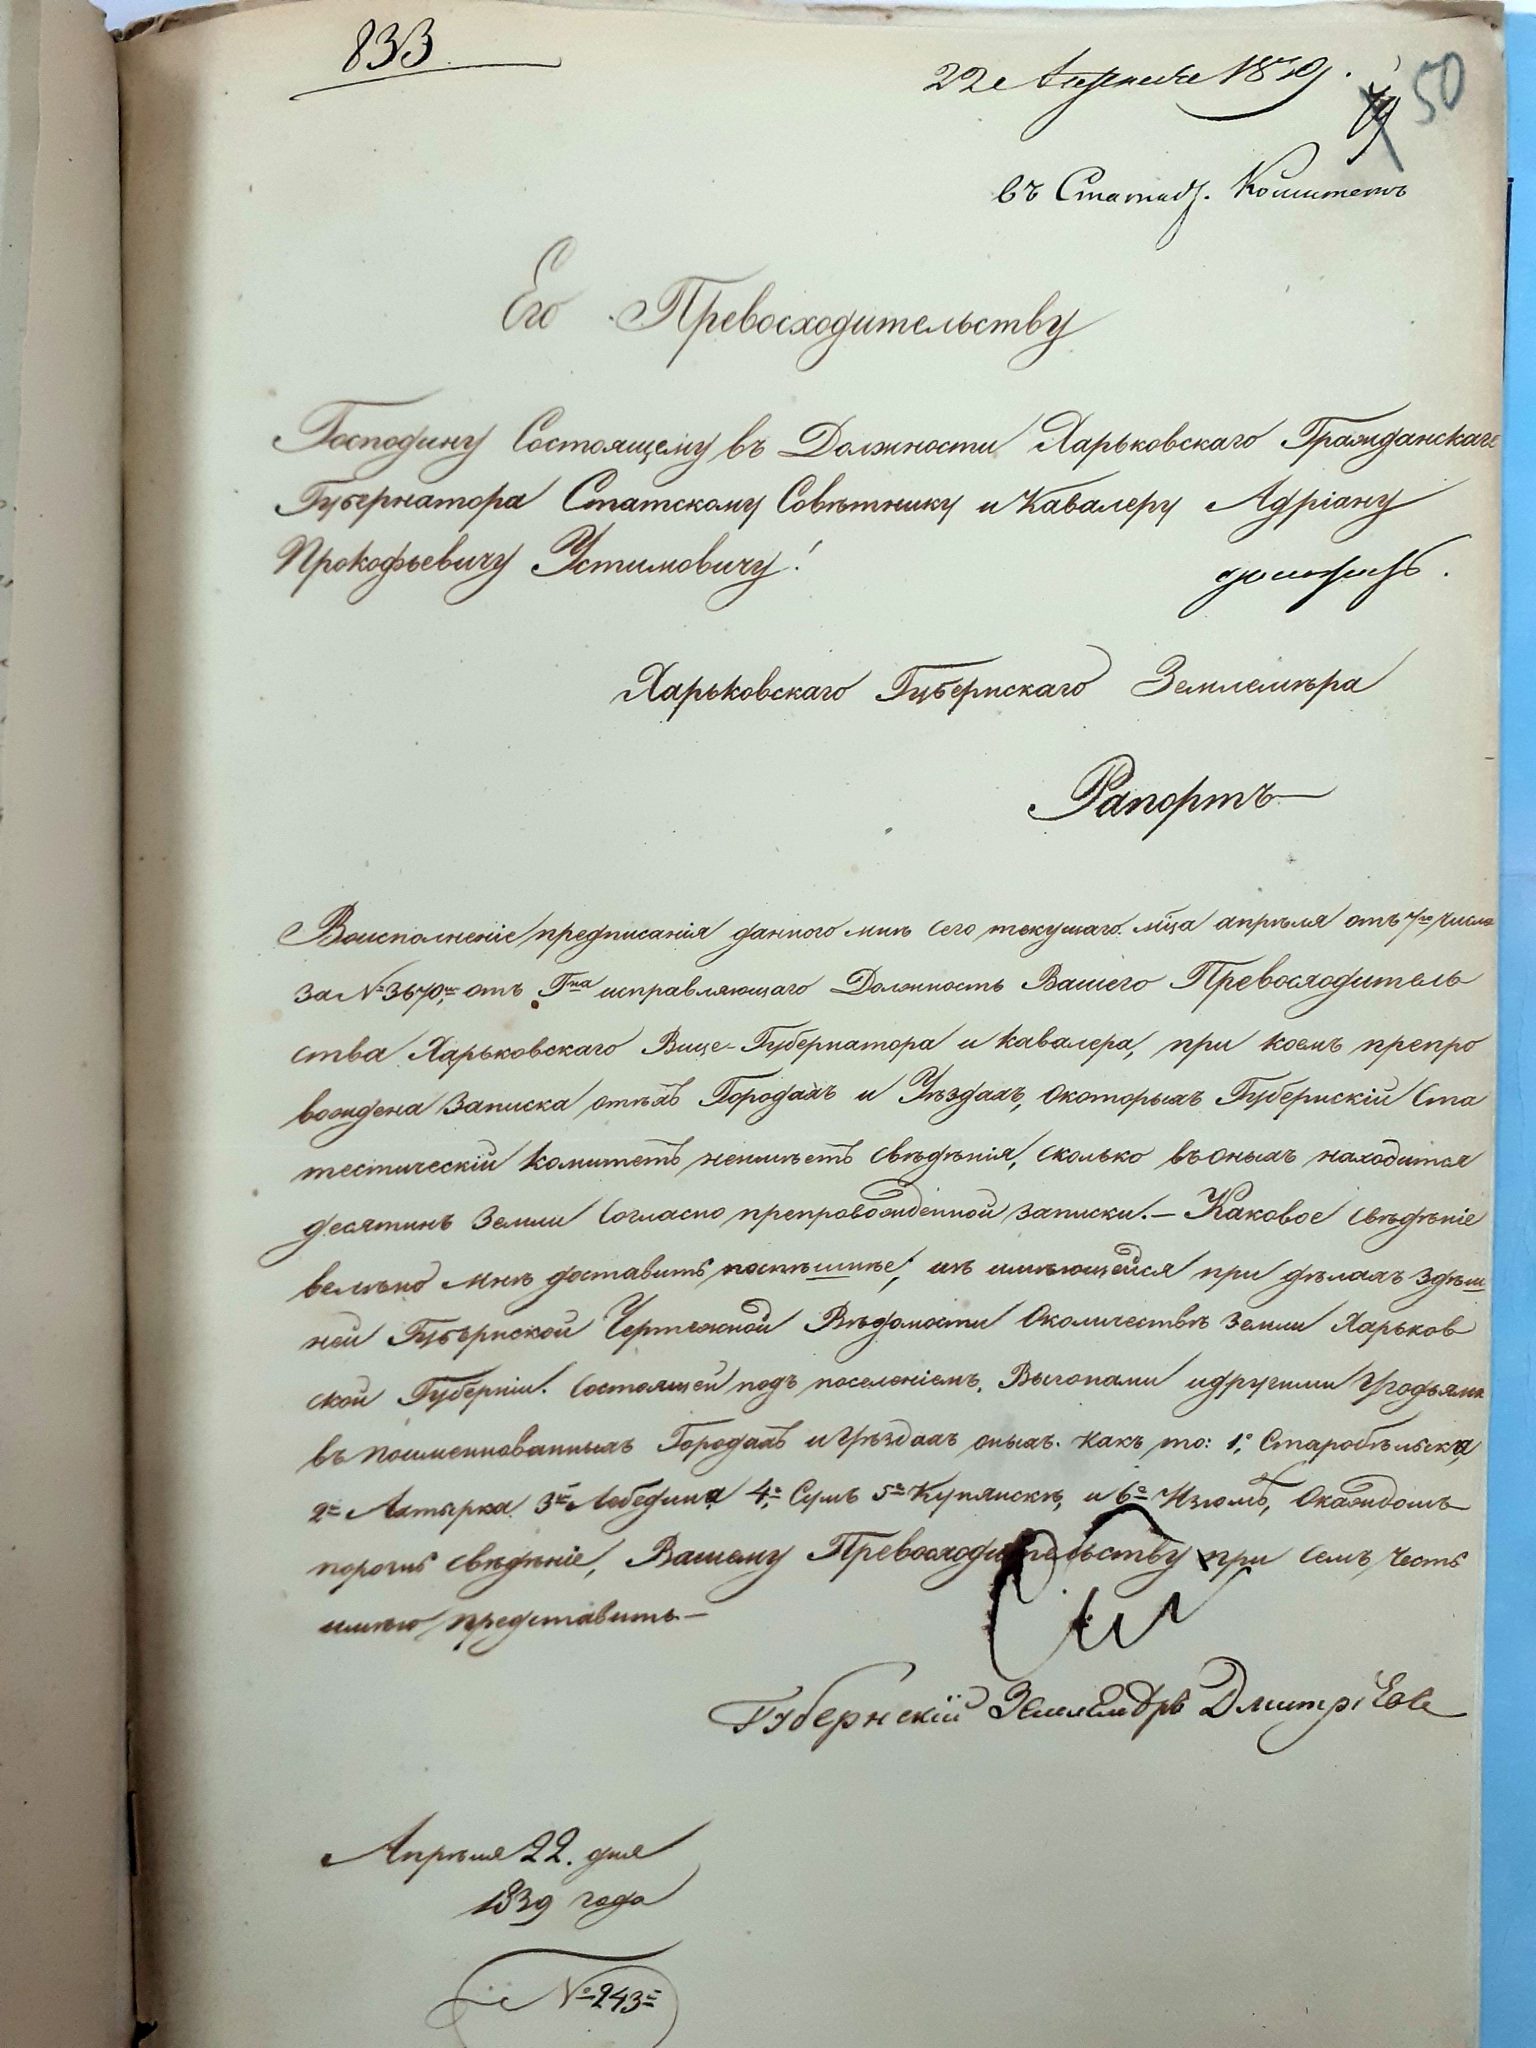 833
22 Апреля 1839.
50
въ Статист. Комитетъ
Его Превосходительству
Господину Состоящему въ Должности Харьковскаго Гражданскаго
Губернатора Статскому Совѣтнику и Кавалеру Адріану
Прокофьевичу Устимовичу!
Харьковскаго Губернскаго Землемѣра
Рапортъ
Воисполненіе предписанія данного мнѣ сего текущаго м̃ца апрѣля отъ 7го числа
за № 3670м, отъ Гна исправляющаго Должность Вашего Превосходитель
ства Харьковскаго Вице-Губернатора и кавалера, при коемъ препро
вождена Записка отѣхъ Городахъ и Уѣздахъ, окоторыхъ Губернскій Ста
тестическій комитетъ неимѣетъ свѣдѣнія, сколько въоныхъ находится
десятинъ земли согласно препровожденной записки.— Каковое свѣдѣніе
велѣно мнѣ доставить поспѣшнѣе, изъ имѣющейся при дѣлахъ здѣш
ней Губернской Чертежной Вѣдомости Околичествѣ земли Харьков
ской Губерніи. состоящей подъ поселеніемъ, Выгонами идругими Угодьями
въ поименнованныхъ Городахъ иУѣздахъ оныхъ. какъ то: 1е, Старобѣльска,
2е Ахтырка 3е Лебедина 4е Сумъ 5е Купянскѣ, и 6е Изюмѣ, Окаждомъ
порознь свѣдѣніе, Вашему Превосходительству при семъ честь
имѣю представить.—
Губернскій Землемѣръ Дмитріевъ
Апрѣля 22. дня
1839 года
№ 243й